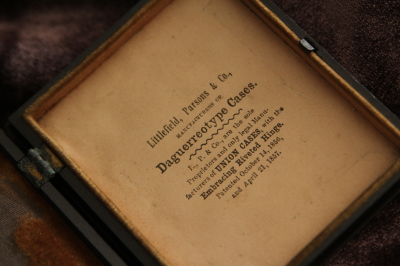 Littlefield, Parsons & Co.,
MANUFACTURERS OF
Daguerreotype Cases.
L., P. & Co., are the sole
Proprietors and only legal Manu-
facturers of UNION CASES, with the
Embracing Riveted Hinge.
Patented October 14, 1856,
and April 21, 1857.